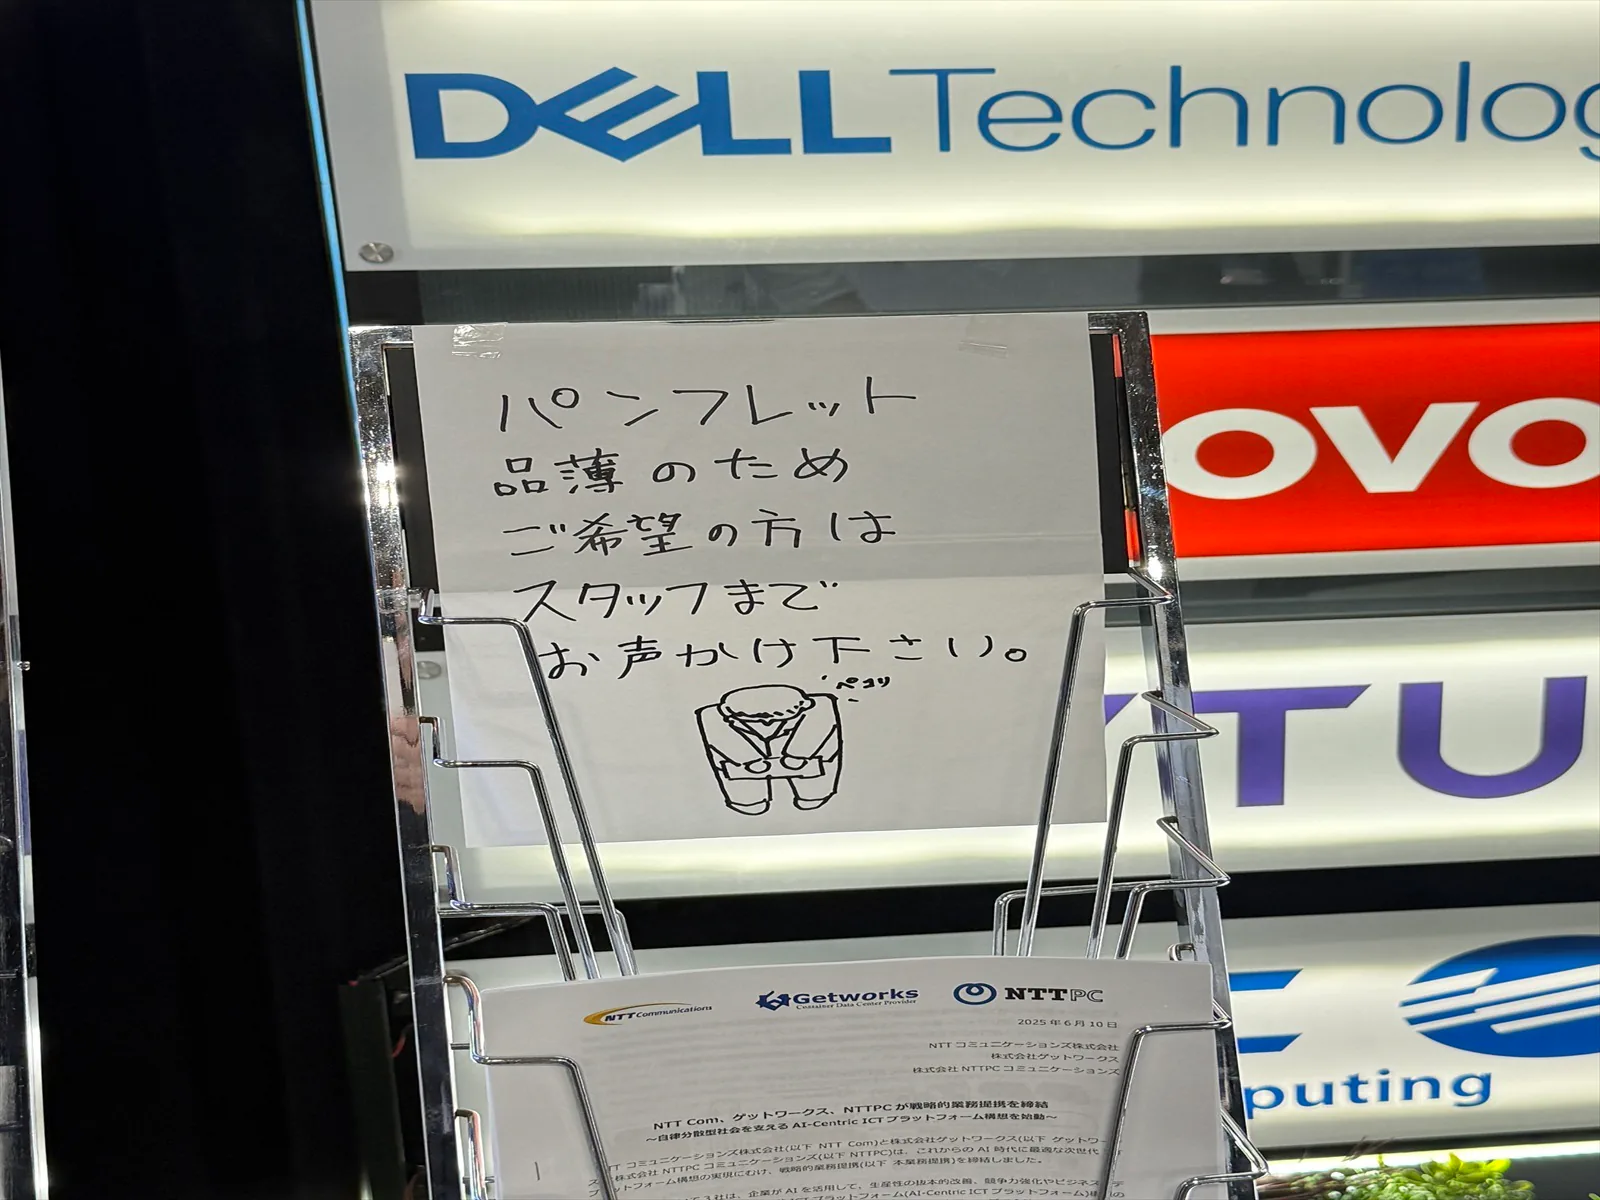 DELL Technolog
パンフレット
品薄のため
ご希望の方は
スタッフまで
お声かけ下さい。
ペコリ
OVO
TU
C
puting
NTT Communications
Getworks
Container Data Center Provider
NTTPC
2025年6月10日
NTTコミュニケーションズ株式会社
株式会社ゲットワークス
株式会社NTTPCコミュニケーションズ
NTT Com、ゲットワークス、NTTPCが戦略的業務提携を締結
～自律分散型社会を支えるAI-Centric ICTプラットフォーム構想を始動～
TTコミュニケーションズ株式会社(以下 NTT Com)と株式会社ゲットワークス(以下 ゲットワー
株式会社NTTPCコミュニケーションズ(以下 NTTPC)は、これからのAI時代に最適な次世代
ットフォーム構想の実現にむけ、戦略的業務提携(以下 本業務提携)を締結しました。
3社は、企業がAIを活用して、生産性の抜本的改善、競争力強化やビジネス
プラットフォーム(AI-Centric ICTプラットフォーム)